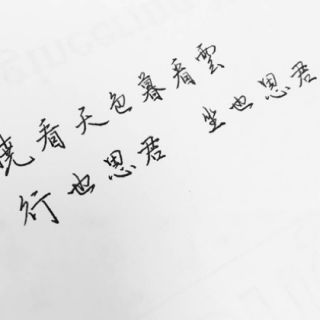 晓看天色暮看雲
行也思君 坐也思君